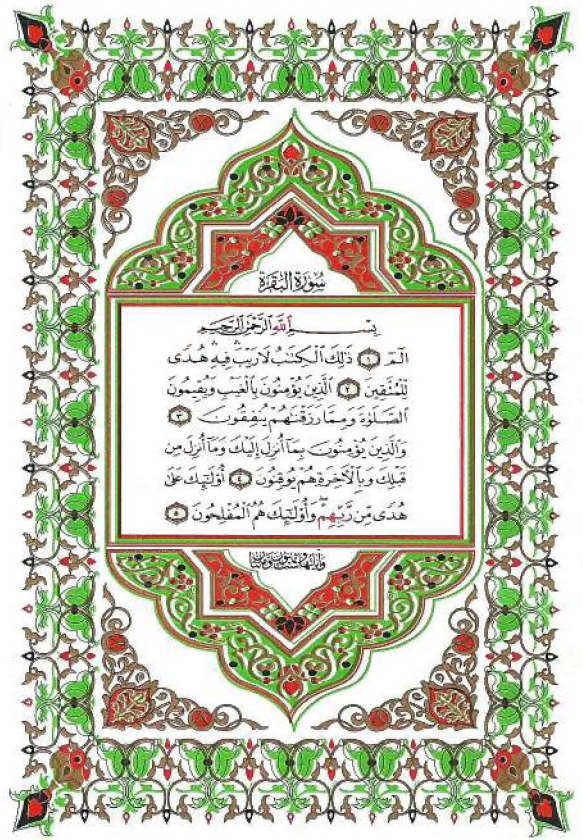 سُورَةُ البَقَرَةِ
بِسْمِ اللَّهِ الرَّحْمَٰنِ الرَّحِيمِ
الٓمٓ ۝١ ذَٰلِكَ الْكِتَٰبُ لَا رَيْبَ ۛ فِيهِ ۛ هُدًى
لِّلْمُتَّقِينَ ۝٢ الَّذِينَ يُؤْمِنُونَ بِالْغَيْبِ وَيُقِيمُونَ
الصَّلَوٰةَ وَمِمَّا رَزَقْنَٰهُمْ يُنفِقُونَ ۝٣
وَالَّذِينَ يُؤْمِنُونَ بِمَا أُنزِلَ إِلَيْكَ وَمَا أُنزِلَ مِن
قَبْلِكَ وَبِالْآخِرَةِ هُمْ يُوقِنُونَ ۝٤ أُو۟لَٰٓئِكَ عَلَىٰ
هُدًى مِّن رَّبِّهِمْ ۖ وَأُو۟لَٰٓئِكَ هُمُ الْمُفْلِحُونَ ۝٥